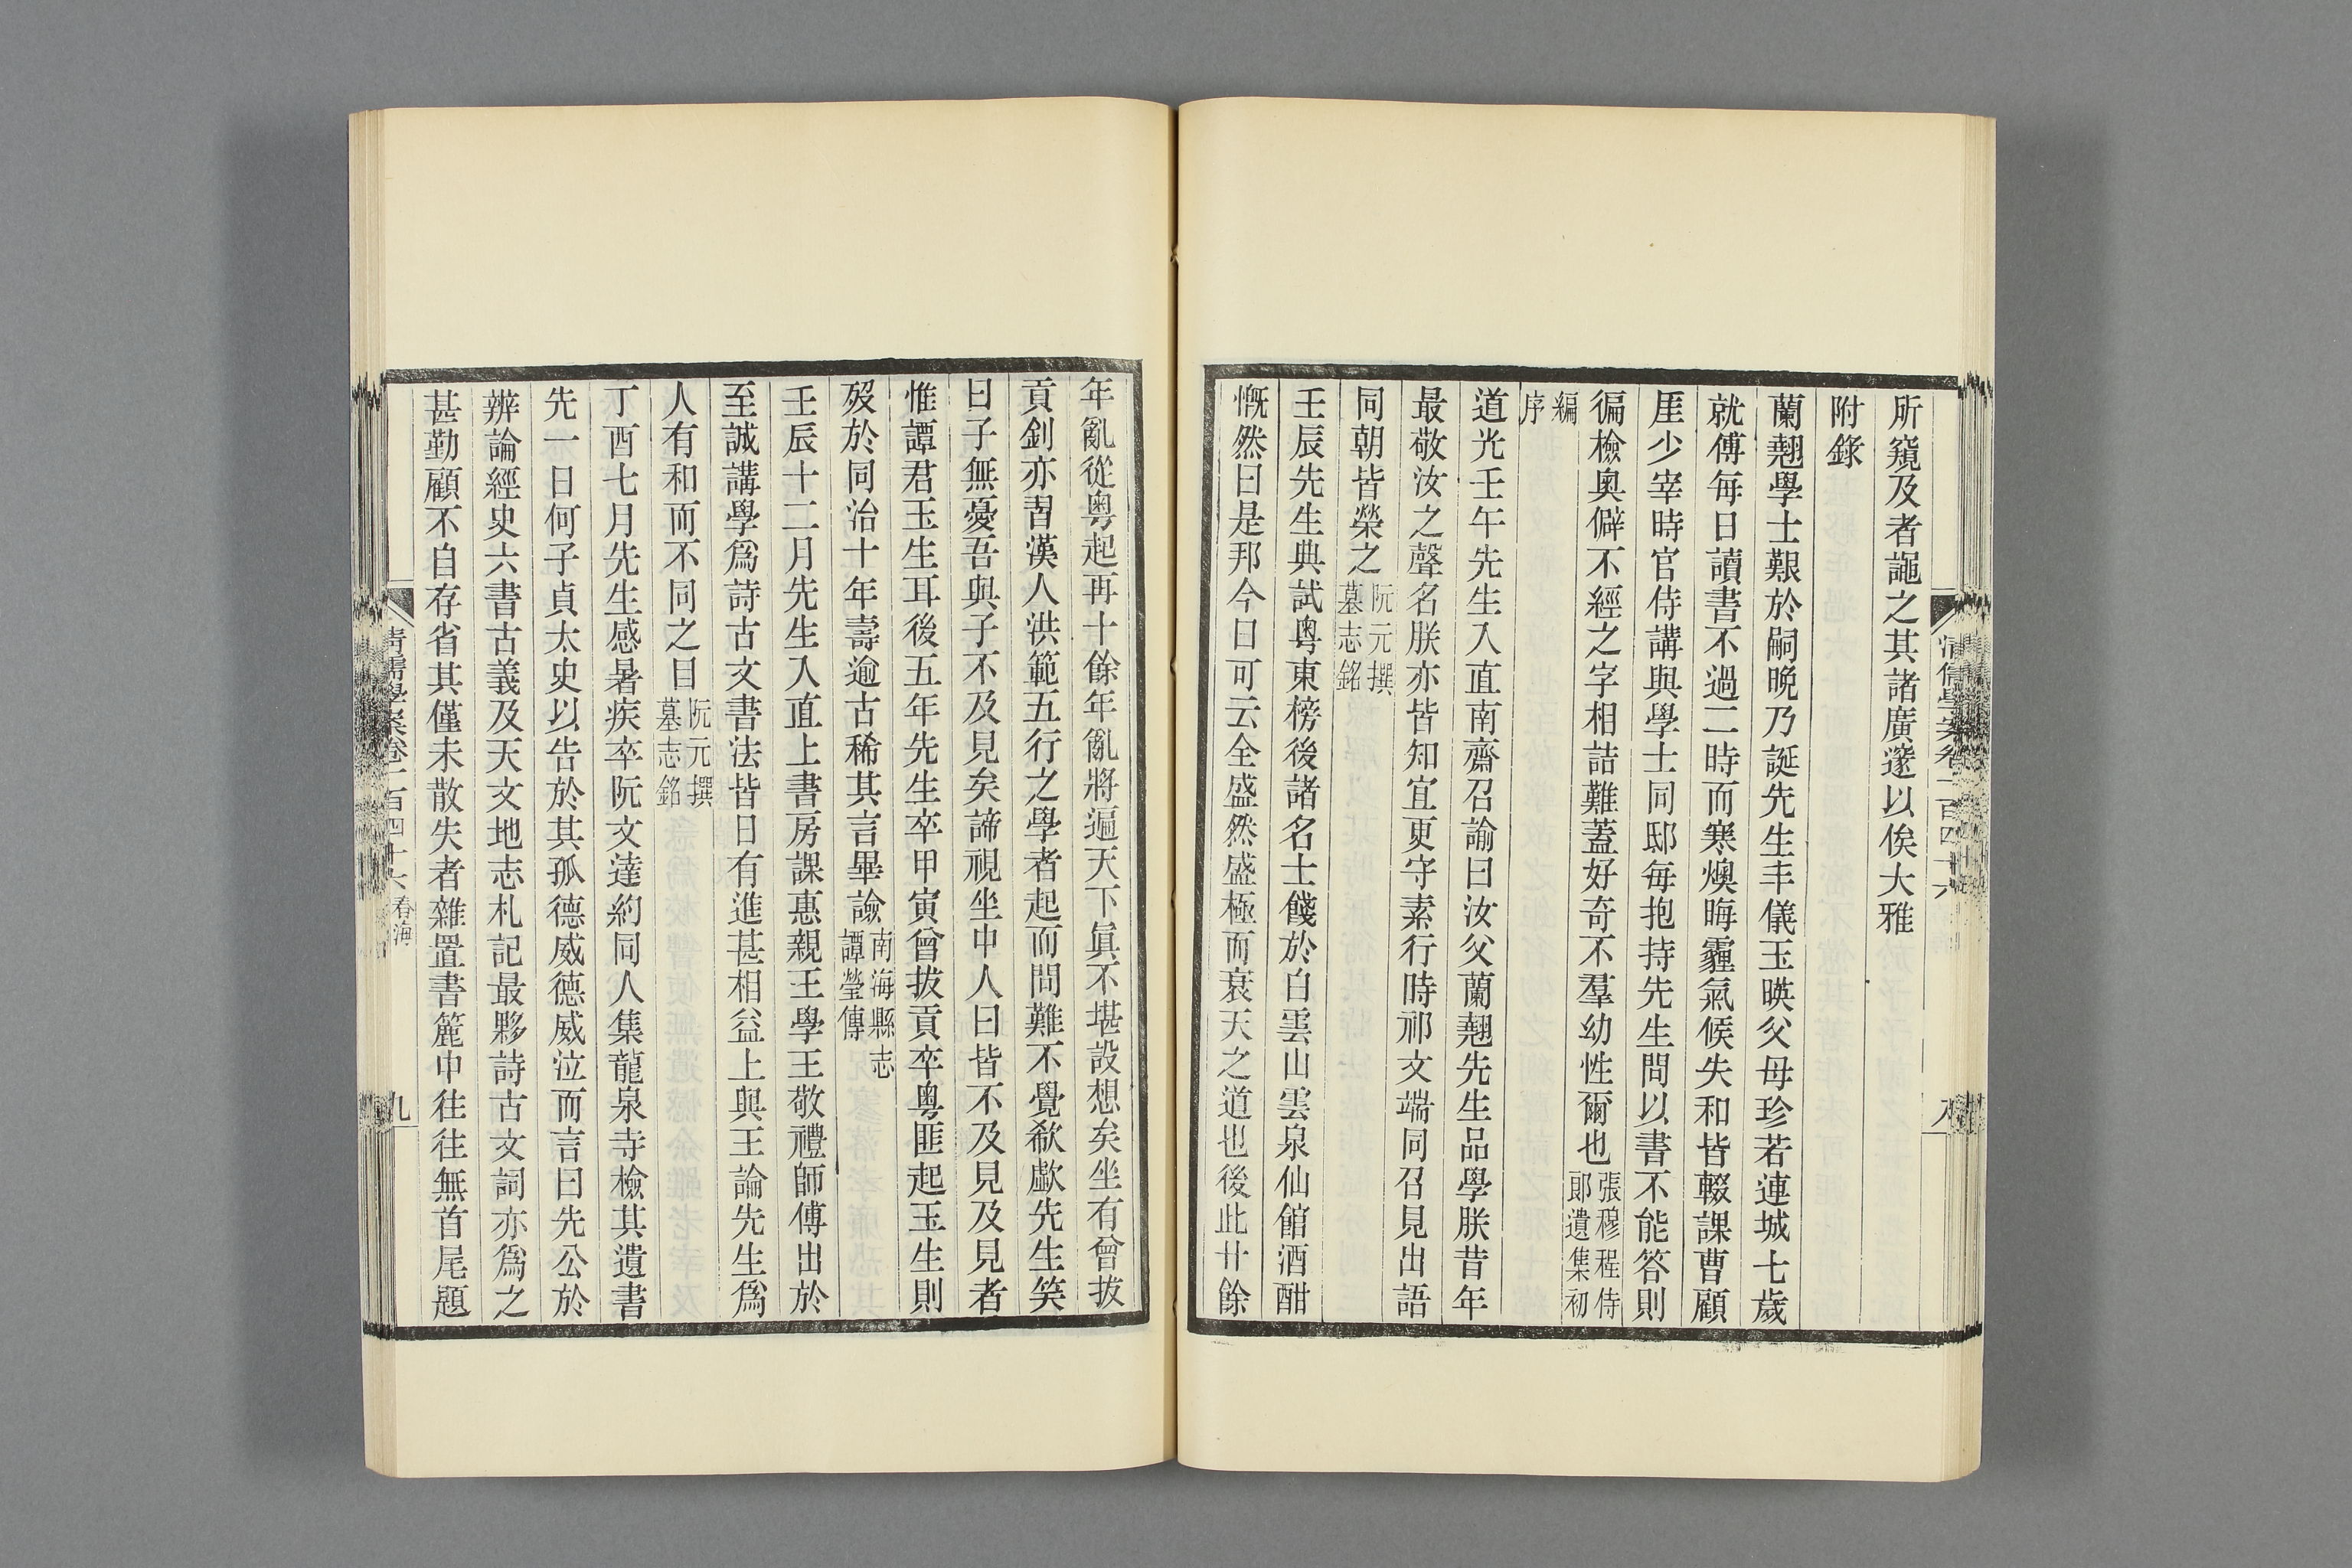 所窺及者謳之其諸廣邃以俟大雅
附錄
蘭翹學士艱於嗣晚乃誕先生丰儀玉暎父母珍若連城七歲
就傅每日讀書不過二時而寒燠晦霾氣候失和皆輟課曹顧
厓少宰時官侍講與學士同邸每抱持先生問以書不能答則
徧檢奧僻不經之字相詰難蓋好奇不羣幼性爾也張穆程侍郎遺集初
編序
道光壬午先生入直南齋召諭曰汝父蘭翹先生品學朕昔年
最敬汝之聲名朕亦皆知宜更守素行時祁文端同召見出語
同朝皆榮之阮元撰墓志銘
壬辰先生典試粵東榜後諸名士餞於白雲山雲泉仙館酒酣
慨然曰是邦今日可云全盛然盛極而衰天之道也後此廿餘
年亂從粵起再十餘年亂將遍天下眞不堪設想矣坐有曾拔
貢釗亦習漢人洪範五行之學者起而問難不覺欷歔先生笑
曰子無憂吾與子不及見矣諦視坐中人曰皆不及見及見者
惟譚君玉生耳後五年先生卒甲寅曾拔貢卒粵匪起玉生則
歿於同治十年壽逾古稀其言畢諭南海縣志譚瑩傳
壬辰十二月先生入直上書房課惠親王學王敬禮師傅出於
至誠講學爲詩古文書法皆日有進甚相益上與王論先生爲
人有和而不同之目阮元撰墓志銘
丁酉七月先生感暑疾卒阮文達約同人集龍泉寺檢其遺書
先一日何子貞太史以告於其孤德威德威泣而言曰先公於
辨論經史六書古義及天文地志札記最夥詩古文詞亦爲之
甚勤顧不自存省其僅未散失者雜置書簏中往往無首尾題
清儒學案卷一百四十六 春海
九
清儒學案卷一百四十六
八